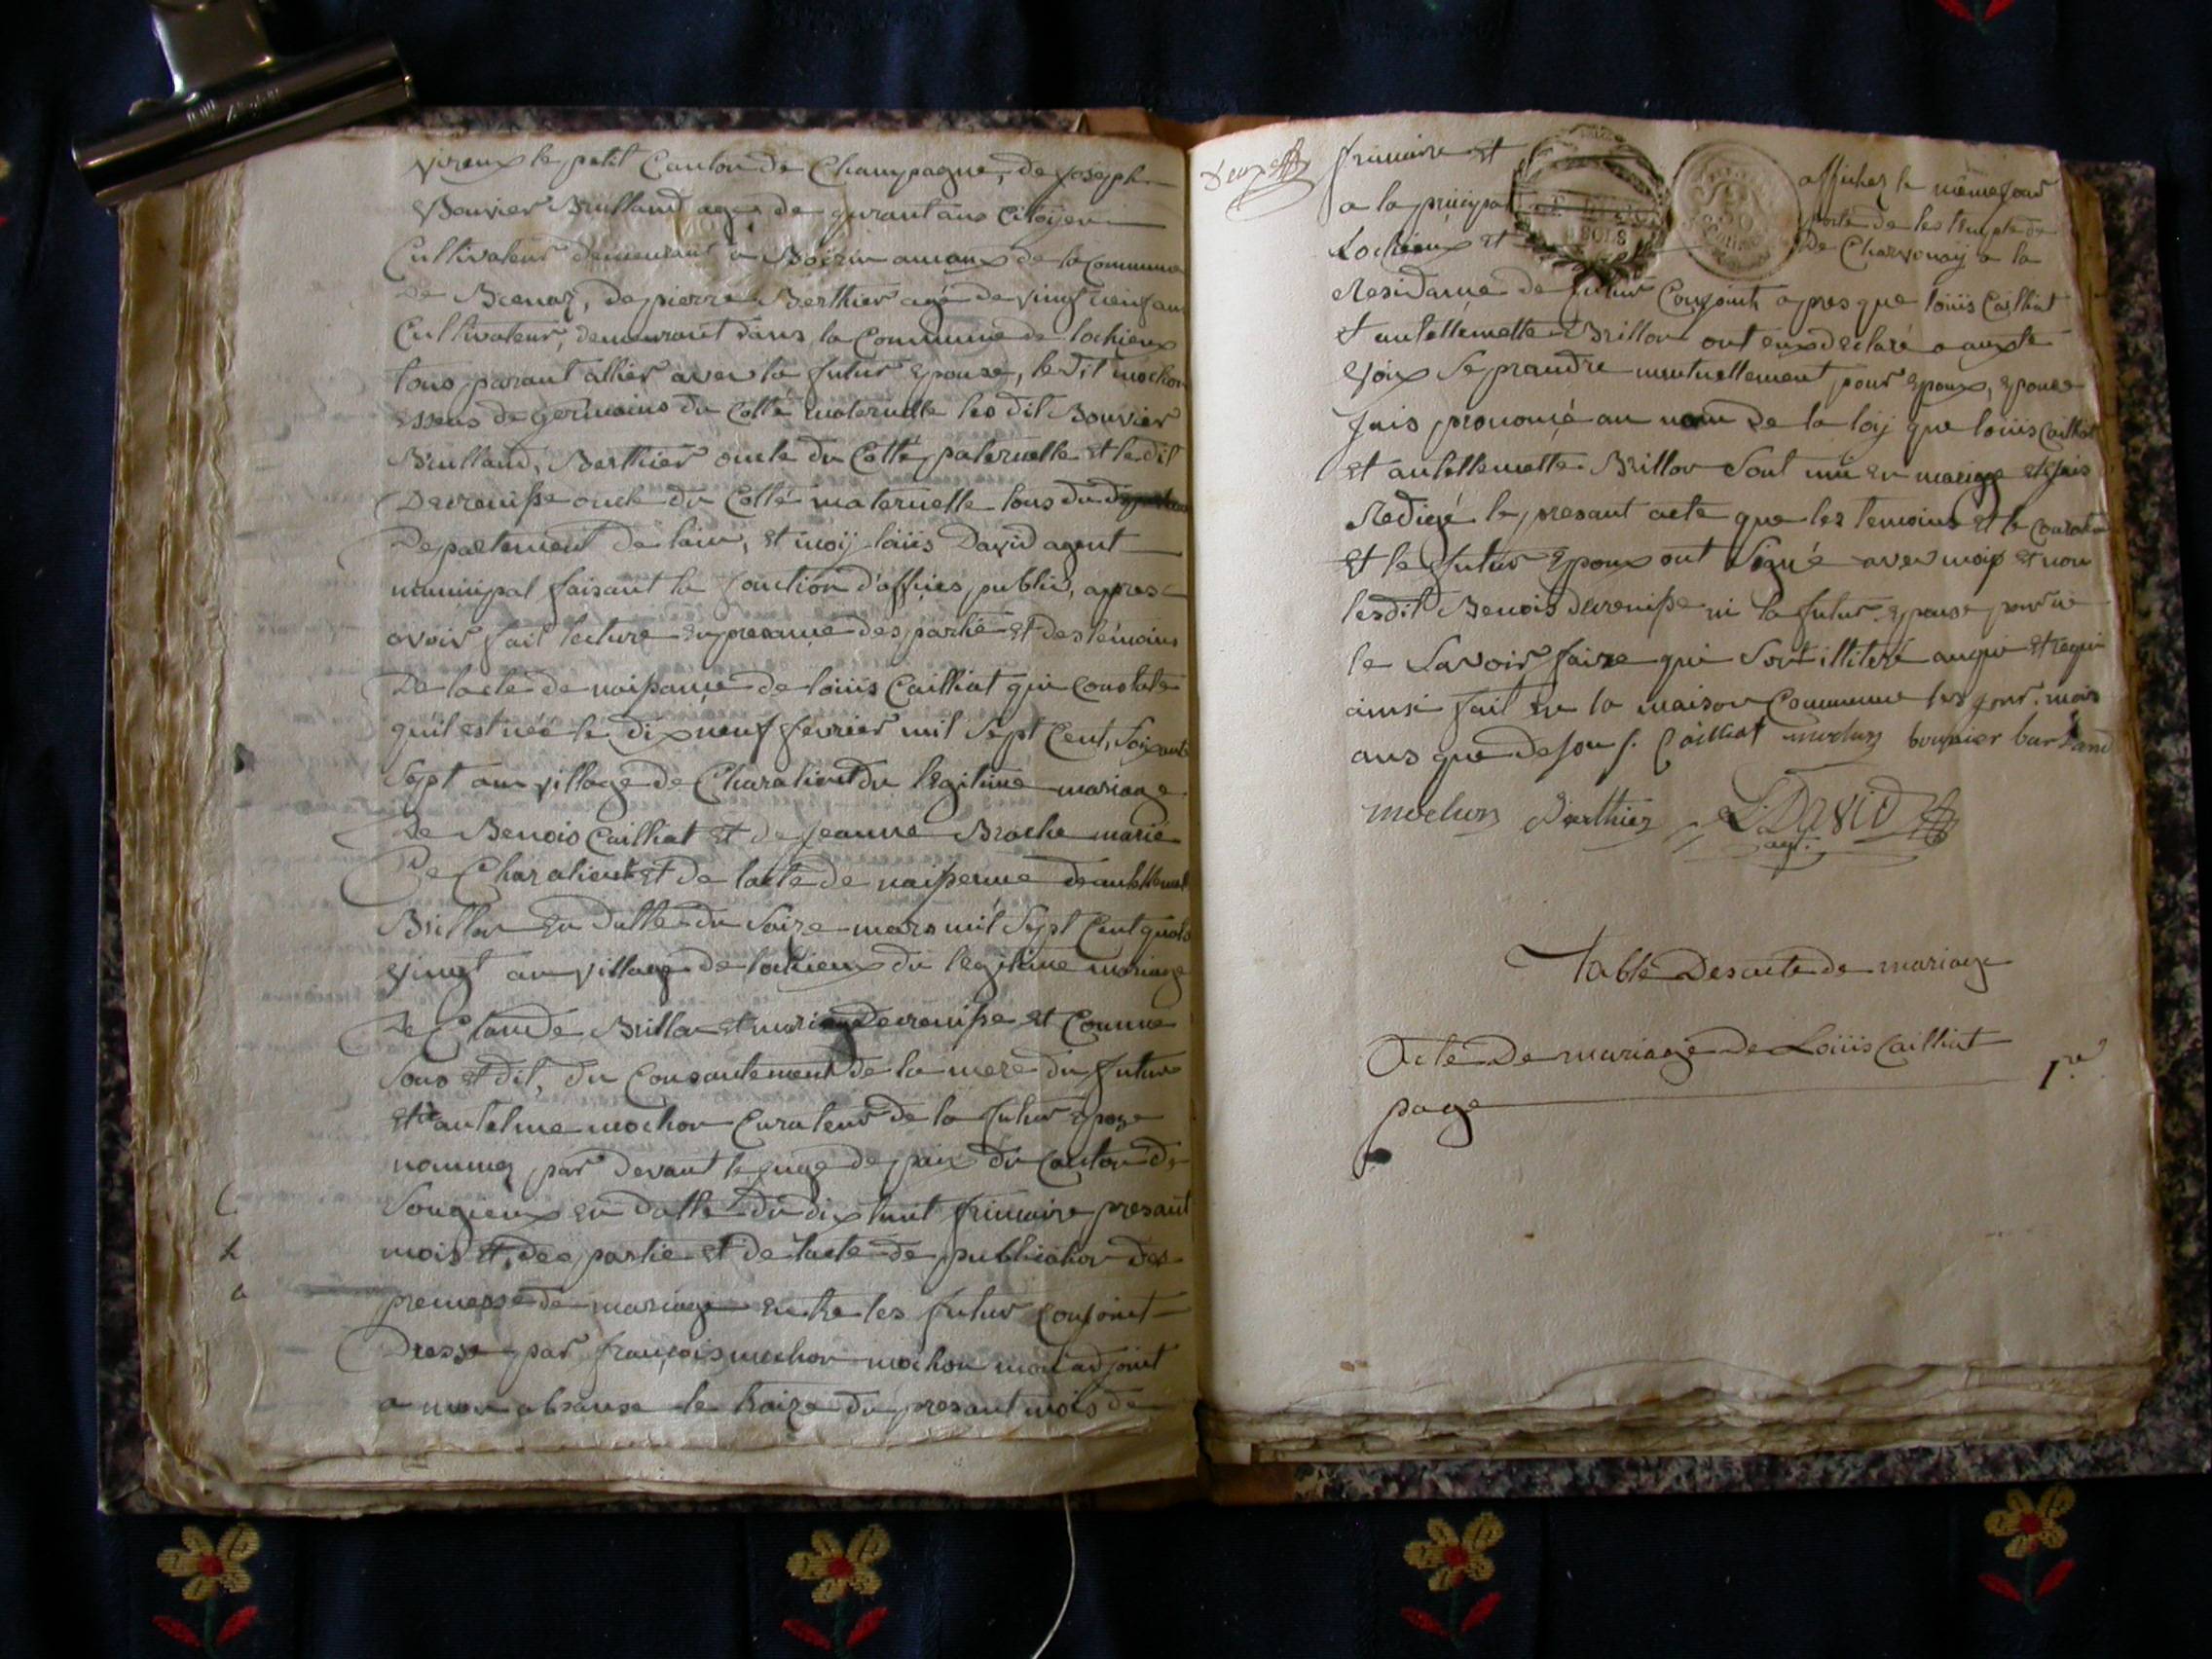 vireux le petit Canton de Champagne, de joseph
Bouvier Brulland agé de quarant ans Citoÿen
Cultivateur demeurant a Boirin amaux de la Commune
de Béenas, de pierre Berthier agé de vingt neuf ans
Cultivateur, demeurant dans la Commune de lochieux
tous parant allier avec la futur Epouse, le dit mochon
Essus de germains du Collé maternelle les dit Bouvier
Brulland, Berthier oncle du Cotté paternelle et le dit
Decroupsse oncle du Collé maternelle tous du
Departement de lain, et moÿ loüis David agent
municipal faisant la fonction d'officies public, apres
avoir fait lecture en presance des partie et des témoins
De lacte de naissance de loüis Cailliat qui constate
quil est néé le dix neuf fevrier mil sept Cent soixante
sept au village de Charalieu du legitime mariage
De Benois Cailliat et de jeanne Broche marié
De Charalieu et de lacte de naissence de
Brillon en datte du saize mars mil sept Cent quatre
vingt au village de lochieux du legitime mariage
De Claude Brillon et Decroupsse et Comme
sous et dit, du Consantement de la mere du futur
et d'antelme mochon Curateur de la futur Epoze
nommez par devant le juge de paix du Canton de
Songieux en datte du dix huit frimaire presant
mois et, des partie et de lacte de publication des
premesse de mariage entre les futur Conjoint
Dressé par françois mochon mon adjoint
a mon absanse le traize du presant mois de
C
L
a
Deux
frimaire et affichez le même jour
a la principal porte de les temple de
Lochieux et De Charvonay a la
Residance de futur Conjoint apres que loüis Cailliat
et antellemette Brillon ont eux declaré a auxte
voix se prandre mutuellement pour Epoux, Epouse
jais prononcé au nom De la loÿ que loüis Cailliat
et antellemette Brillon Sont uni en mariage et jais
Redigé le presant acte que les temoins et le Curateur
et le futur Epoux ont Signé avec moÿ et non
lesdit Benois decroupsse ni la futur Epouse pour ne
le Savoir faire qui Sont illiteré anquie et requi
ainsi fait En la maison Commune les jour mois
ans que desous. Cailliat mochon bouvier burland
mochon Berthier L. David
agt.
SOLS
50
Table Des acte de mariage
Acte De mariage De Loüis Cailliat
page 1.re